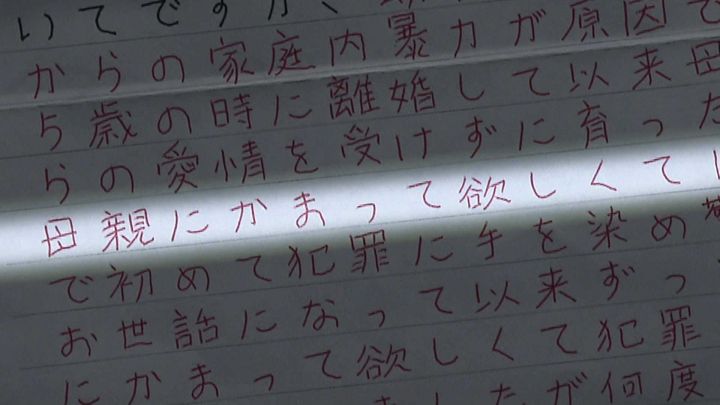 いてですが、
からの家庭内暴力が原因で
5歳の時に離婚して以来母
らの愛情を受けずに育った
母親にかまって欲しくて
で初めて犯罪に手を染め
お世話になって以来ずっ
にかまって欲しくて犯罪
したが何度